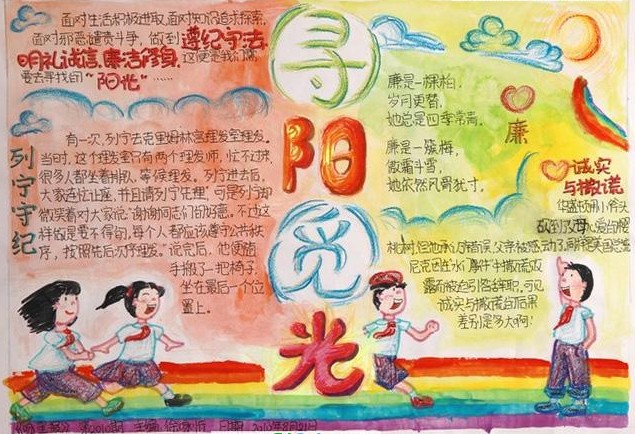 面对生活积极进取,面对知识追求探索,
面对邪恶谴责斗争,做到遵纪守法,
明礼诚信,廉洁修身,这便是我们需
要去寻找的“阳光”……
寻阳光
列宁守纪
有一次,列宁去克里姆林宫理发室理发。
当时,这个理发室只有两个理发师,忙不过来,
很多人都坐着排队,等候理发。列宁进去后,
大家连忙让座,并且请列宁先理,可是列宁却
微笑着对大家说:“谢谢同志们的好意。不过这
样做是要不得的,每个人都应该遵守公共秩
序,按照先后次序理发。”说完后,他便随
手搬了一把椅子,
坐在最后一个位
置上。
廉是一棵柏,
岁月更替,
她总是四季常青。
廉是一簇梅,
傲霜斗雪,
她依然风骨犹寸。
廉
诚实
与撒谎
华盛顿用小斧头
砍到了父母心爱的樱
桃树,但他承认错误,父亲被感动了,
尼克因在“水门事件”中撒谎败
露而被迫引咎辞职,可见,
诚实与撒谎的后果
差别是多大啊!